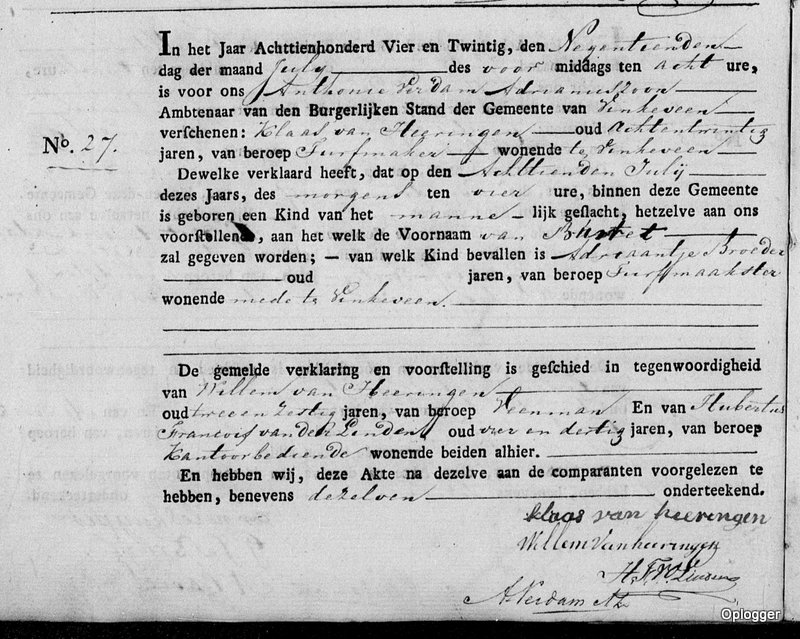 In het Jaar Achttienhonderd Vier en Twintig, den Negentienden
dag der maand July des voor middags ten acht ure,
is voor ons Anthonie Verdam Adrianuszoon
Ambtenaar van den Burgerlijken Stand der Gemeente van Vinkeveen
No. 27. verschenen: Klaas van Heeringen oud achtentwintig
jaren, van beroep Turfmaker wonende te Vinkeveen
Dewelke verklaard heeft, dat op den Achttienden July
dezes Jaars, des morgens ten vier ure, binnen deze Gemeente
is geboren een Kind van het manne- lijk geslacht, hetzelve aan ons
voorstellende, aan het welk de Voornaam van
zal gegeven worden; — van welk Kind bevallen is Adriaantje Broeder
oud jaren, van beroep Turfmaakster
wonende mede te Vinkeveen.
De gemelde verklaring en voorstelling is geschied in tegenwoordigheid
van Willem van Heeringen
oud twee en zestig jaren, van beroep Veenman En van Hubertus
Francois van der Linden oud vier en dertig jaren, van beroep
Kantoorbediende wonende beiden alhier.
En hebben wij, deze Akte na dezelve aan de comparanten voorgelezen te
hebben, benevens dezelven onderteekend.
klaas van heeringen
Willem Van heeringen
H. F. V. D. Linden
A. Verdam Az
Oplogger